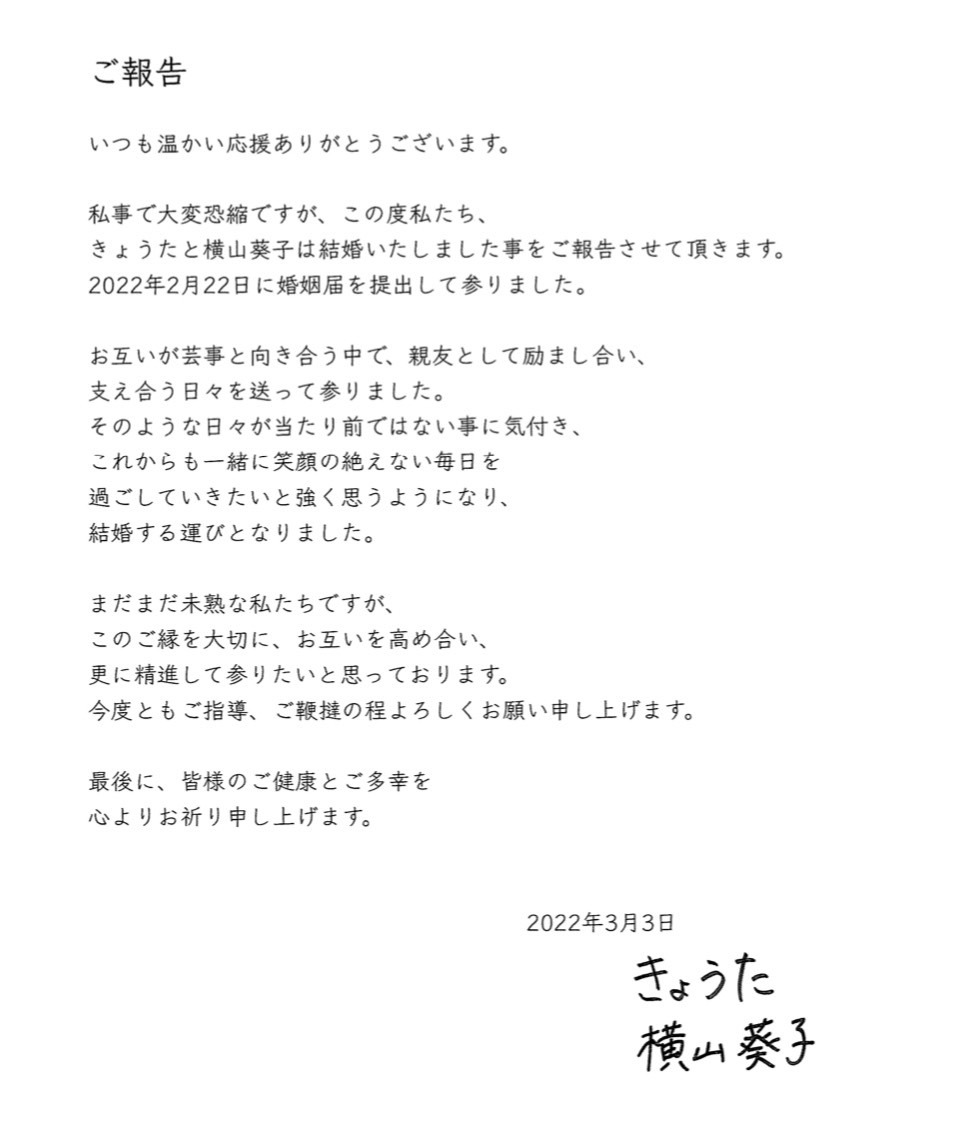 ご報告
いつも温かい応援ありがとうございます。
私事で大変恐縮ですが、この度私たち、
きょうたと横山葵子は結婚いたしました事をご報告させて頂きます。
2022年2月22日に婚姻届を提出して参りました。
お互いが芸事と向き合う中で、親友として励まし合い、
支え合う日々を送って参りました。
そのような日々が当たり前ではない事に気付き、
これからも一緒に笑顔の絶えない毎日を
過ごしていきたいと強く思うようになり、
結婚する運びとなりました。
まだまだ未熟な私たちですが、
このご縁を大切に、お互いを高め合い、
更に精進して参りたいと思っております。
今度ともご指導、ご鞭撻の程よろしくお願い申し上げます。
最後に、皆様のご健康とご多幸を
心よりお祈り申し上げます。
2022年3月3日
きょうた
横山葵子